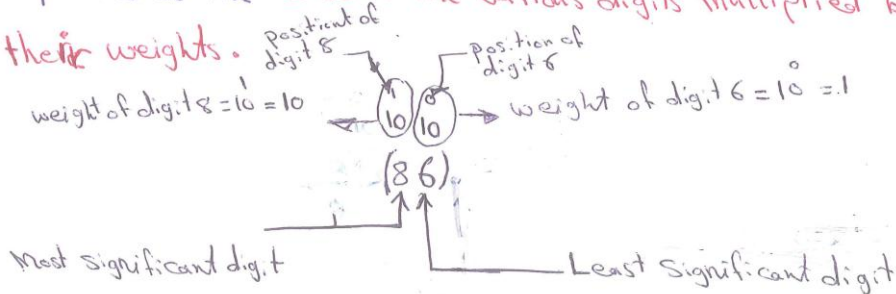 various digits multiplied
their weights.
positiont of digit 8
position of digit 6
weight of digit 8 = 10¹ = 10
10¹ 10⁰
weight of digit 6 = 10⁰ = 1
(86)
Most significant digit
Least Significant digit